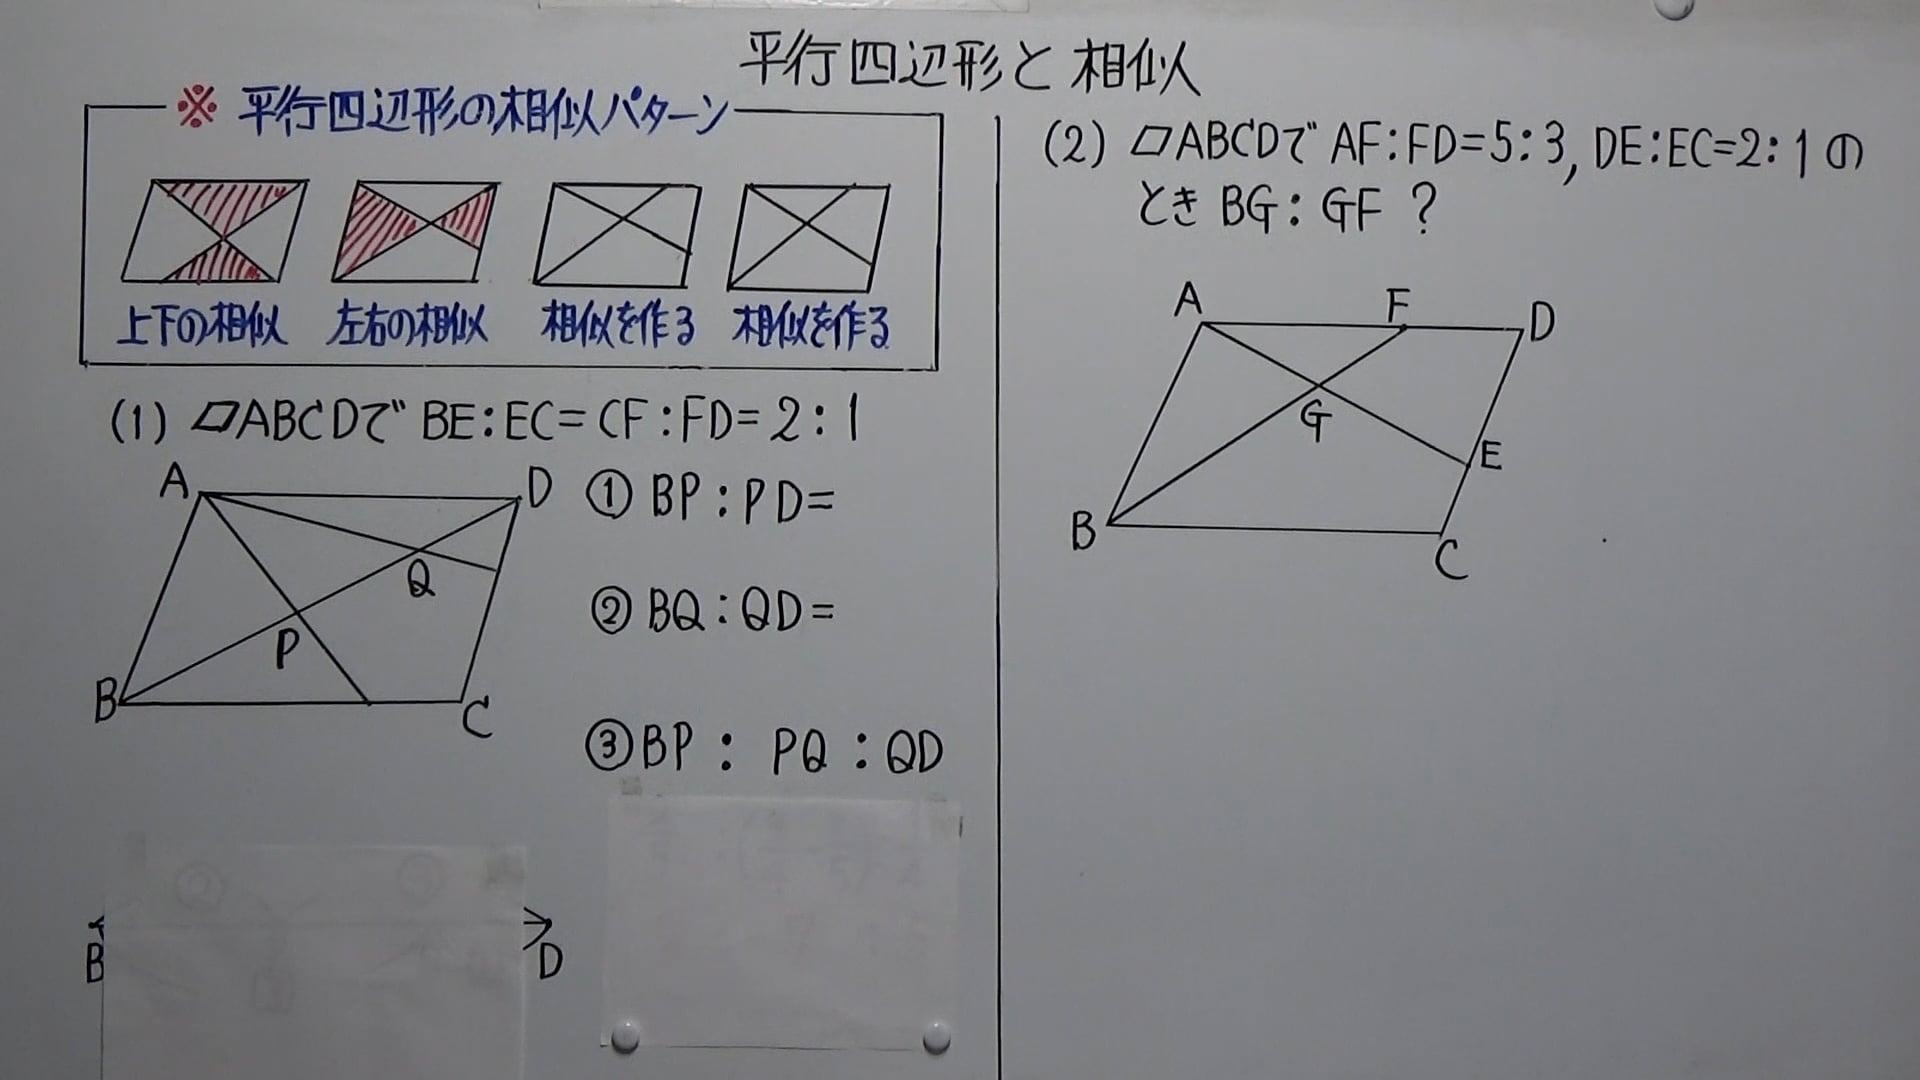 平行四辺形と相似
※ 平行四辺形の相似パターン
上下の相似 左右の相似 相似を作る 相似を作る
(1) ▱ABCDで BE:EC=CF:FD=2:1
A D
Q
P
B C
① BP:PD=
② BQ:QD=
③ BP : PQ : QD
B D
(2) ▱ABCDで AF:FD=5:3, DE:EC=2:1 の
とき BG:GF ?
A F D
G
E
B C